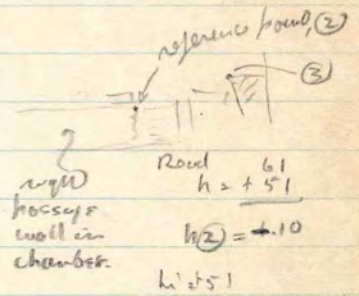 reference point, ②
③
Road 61
h = + 51
right
passage
wall in
chamber.
h② = +.10
h' = + 51